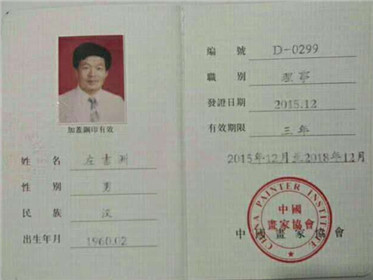 加蓋鋼印有效
姓 名 左書測
性 別 男
民 族 汉
出生年月 1960.02
編 號 D-0299
職 別 理事
發證日期 2015.12
有效期限 三年
2015年12月至2018年12月
中國畫家協會
CHINA PAINTER INSTITUTE
中國
畫家協會